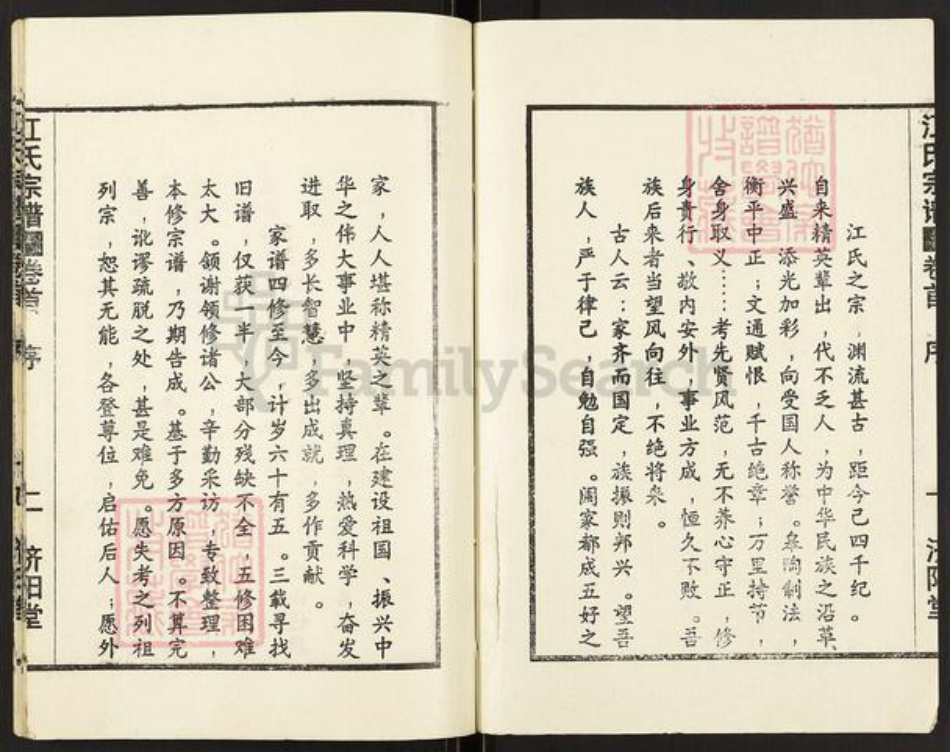 江氏宗谱 卷首 序 一 济阳堂
江氏之宗，渊流甚古，距今已四千纪。
自来精英辈出，代不乏人，为中华民族之沿革、
兴盛 添光加彩，向受国人称誉。皋陶制法，
衡平中正；文通赋恨，千古绝章；万里持节，
舍身取义……考先贤风范，无不养心守正，修
身责行、敬内安外，事业方成，恒久不败。吾
族后来者当望风向往，不绝将来。
古人云：家齐而国定，族振则邦兴。望吾
族人，严于律己，自勉自强。阖家都成五好之
家，人人堪称精英之辈。在建设祖国、振兴中
华之伟大事业中，坚持真理，热爱科学，奋发
进取，多长智慧，多出成就，多作贡献。
家谱四修至今，计岁六十有五。三载寻找
旧谱，仅获一半，大部分残缺不全，五修困难
太大。领谢领修诸公，辛勤采访，专致整理，
本修宗谱，乃期告成。基于多方原因。不算完
善，讹谬疏脱之处，甚是难免。愿失考之列祖
列宗，恕其无能，各登尊位，启佑后人；愿外
江氏宗谱 卷首 序 二 济阳堂
FamilySearch